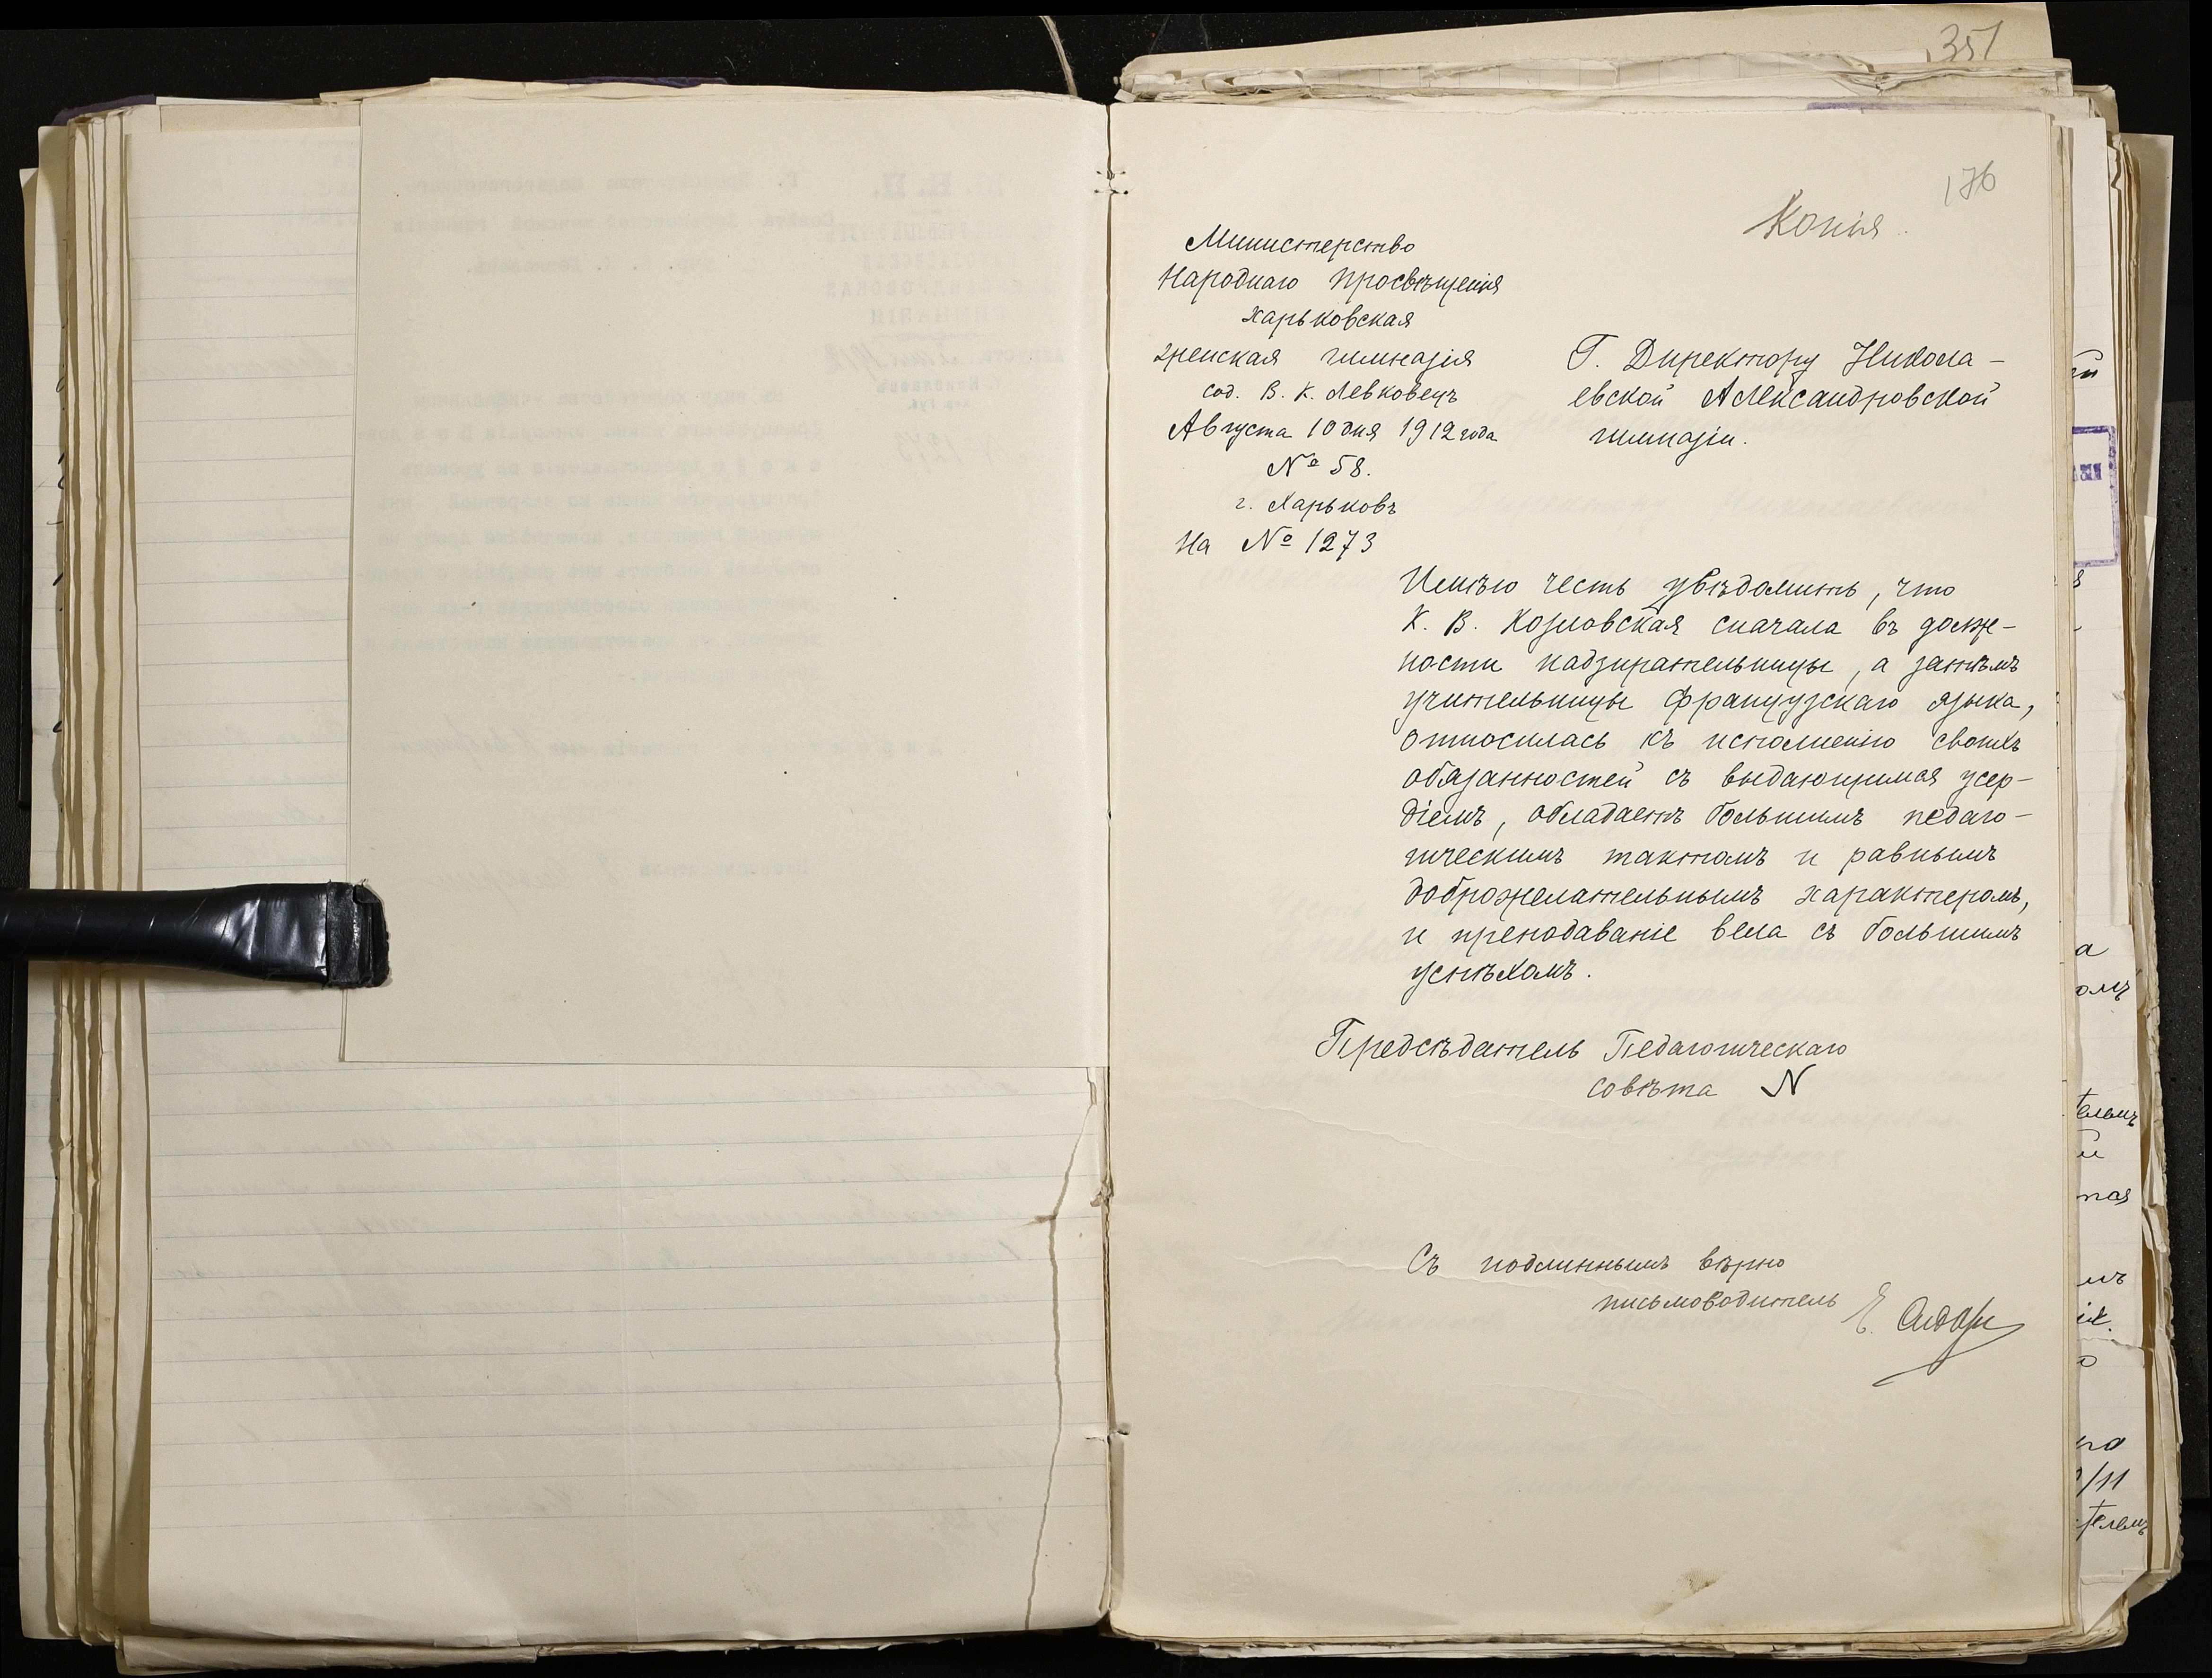 351
176
Копія.
Министерство
Народнаго Просвѣщенія
Харьковская
женская гимназія
сод. В. К. Левковецъ
Августа 10 дня 1912 года
№ 58.
г. Харьковъ
На № 1273
Г. Директору Никола-
евской Александровской
гимназіи.
Имѣю честь увѣдомить, что
К. В. Козловская сначала въ долж-
ности надзирательницы, а затѣмъ
учительницы французскаго языка,
относилась къ исполненію своихъ
обязанностей съ выдающимся усер-
діемъ, обладаетъ большимъ педаго-
гическимъ тактомъ и равнымъ
доброжелательнымъ характеромъ,
и преподаваніе вела съ большимъ
успѣхомъ.
Предсѣдатель Педагогическаго
совѣта N
Съ подлиннымъ вѣрно
письмоводитель Е.